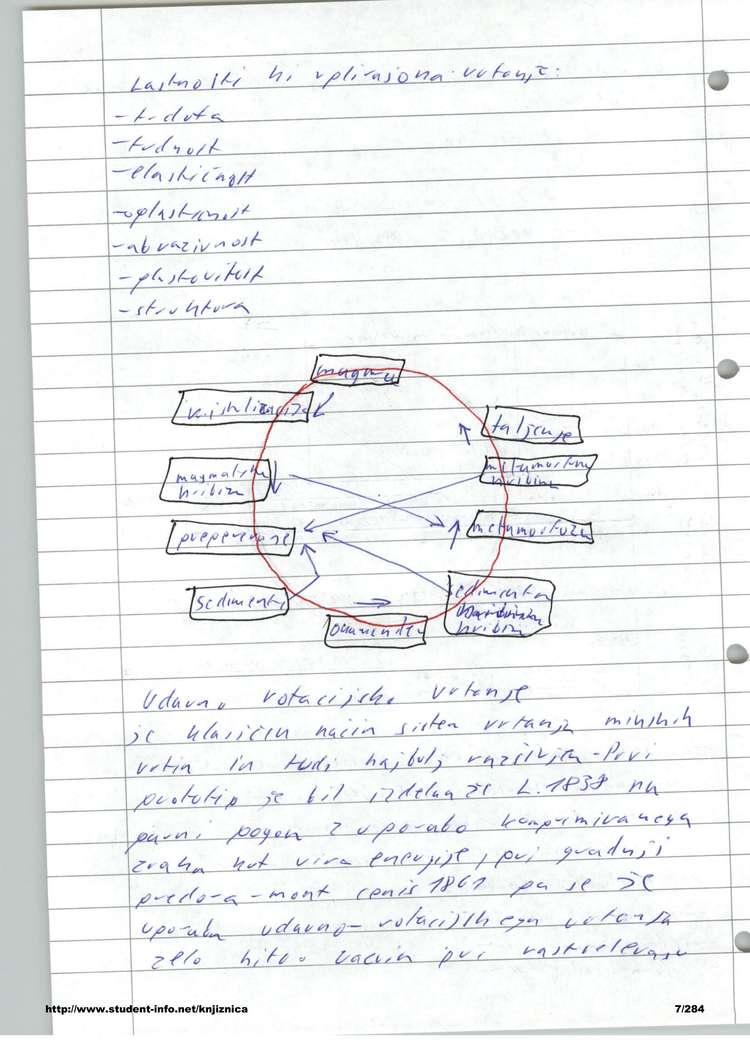 Lastnosti ki vplivajo na vrtanje:
-trdota
-trdnost
-elastičnost
-oplastičnost
-abrazivnost
-plastovitost
-struktura
magma
kristalizacija
taljenje
magmatske
hribin
metamorfne
hribin
preperevanje
metamorfoza
sedimenti
sedimentne
hribin
Udarno rotacijsko vrtanje
je klasičen način sistem vrtanja minskih
vrtin in tudi najbolj razširjen-Prvi
prototip je bil izdelan že L. 1838 na
parni pogon z uporabo komprimiranega
zraka kot vira energije, pri gradnji
predora-mont cenis 1861 pa se je
uporaba udarno-rotacijskega vrtanja
zelo hitro
http://www.student-info.net/knjiznica
7/284